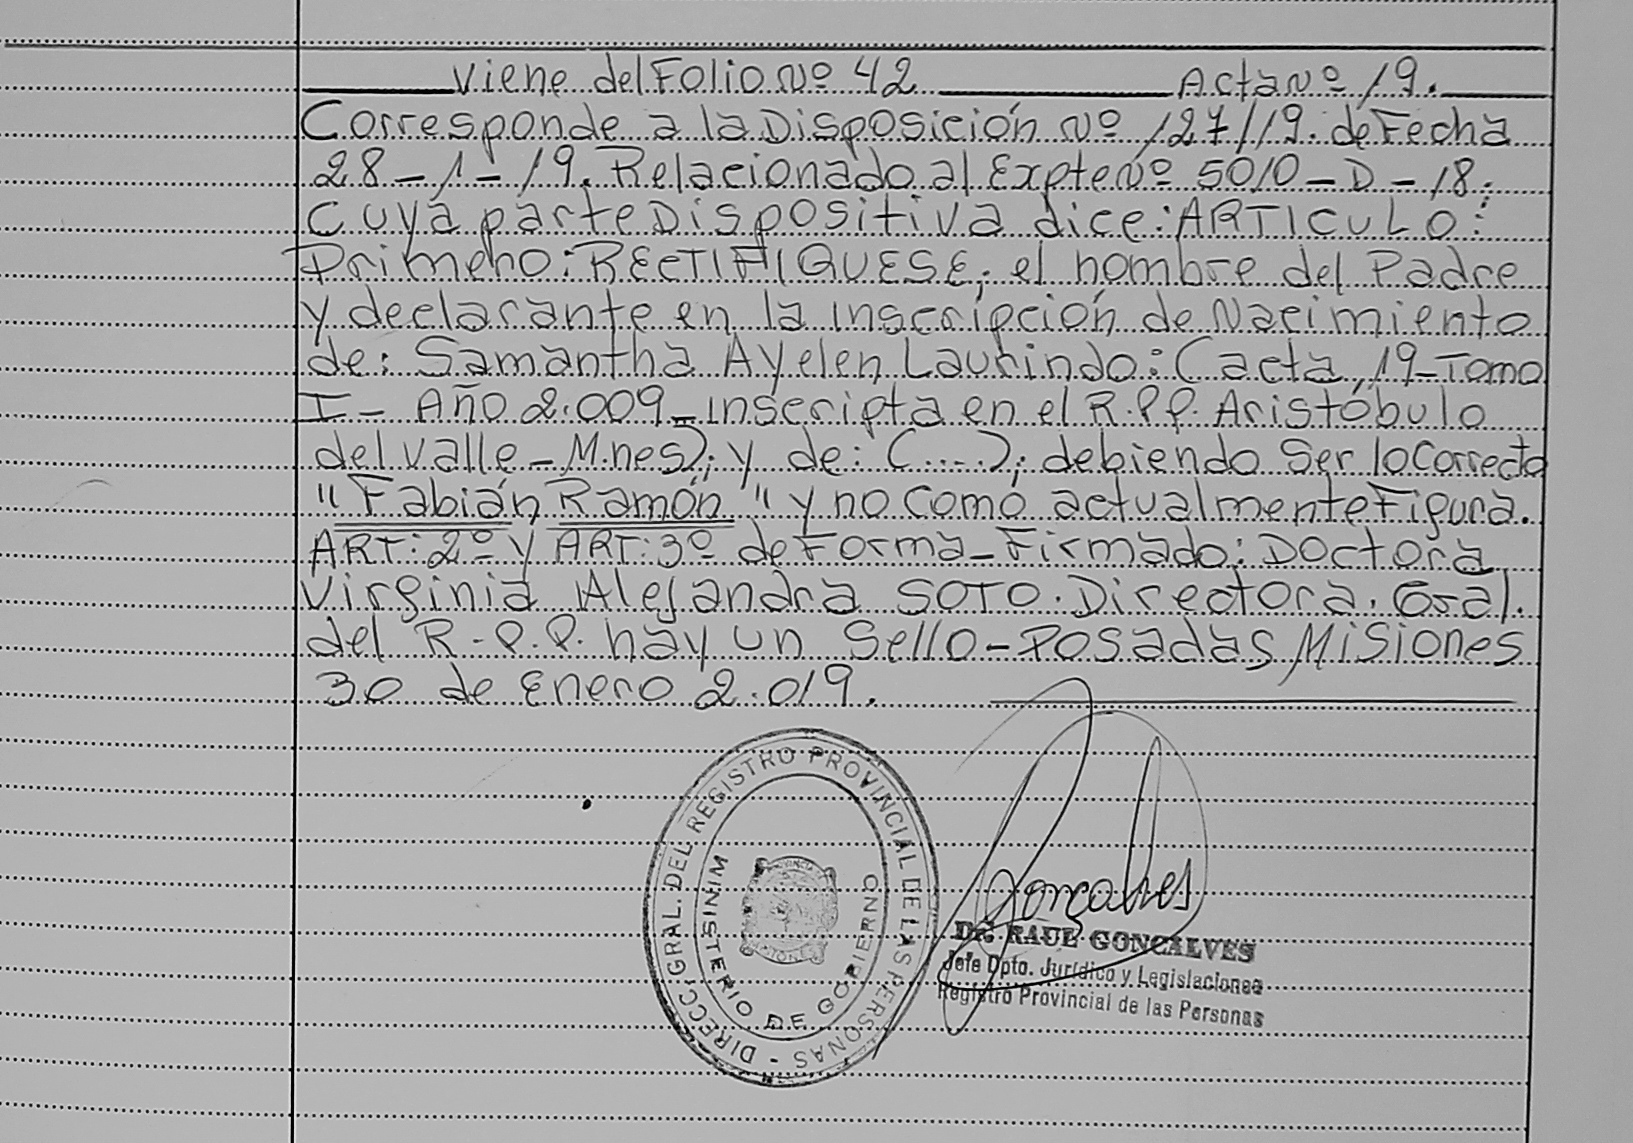 Viene del Folio Nº 42 Acta Nº 19.
Corresponde a la Disposición Nº 127/19. de Fecha
28-1-19. Relacionado al Expte Nº 5010-D-18;
cuya parte Dispositiva dice: ARTICULO:
Primero: RECTIFIQUESE; el nombre del Padre
y declarante en la inscripción de Nacimiento
de: Samantha Ayelen Laurindo: (acta, 19-Tomo
I- Año 2.009-inscripta en el R.P.P. Aristóbulo
del Valle-M.nes); y de: (....); debiendo Ser lo Correcto
"Fabián Ramón" y no como actualmente Figura.
ART: 2º y ART: 3º de Forma-Firmado: Doctora
Virginia Alejandra SOTO. Directora. Gral.
del R-P.P. hay un Sello-Posadas Misiones
30 de Enero 2.019.
DIRECC. GRAL. DEL REGISTRO PROVINCIAL DE LAS PERSONAS -
MINISTERIO DE GOBIERNO
Gonçalves
Dr. RAUL GONCALVES
Jefe Dpto. Jurídico y Legislaciones
Registro Provincial de las Personas